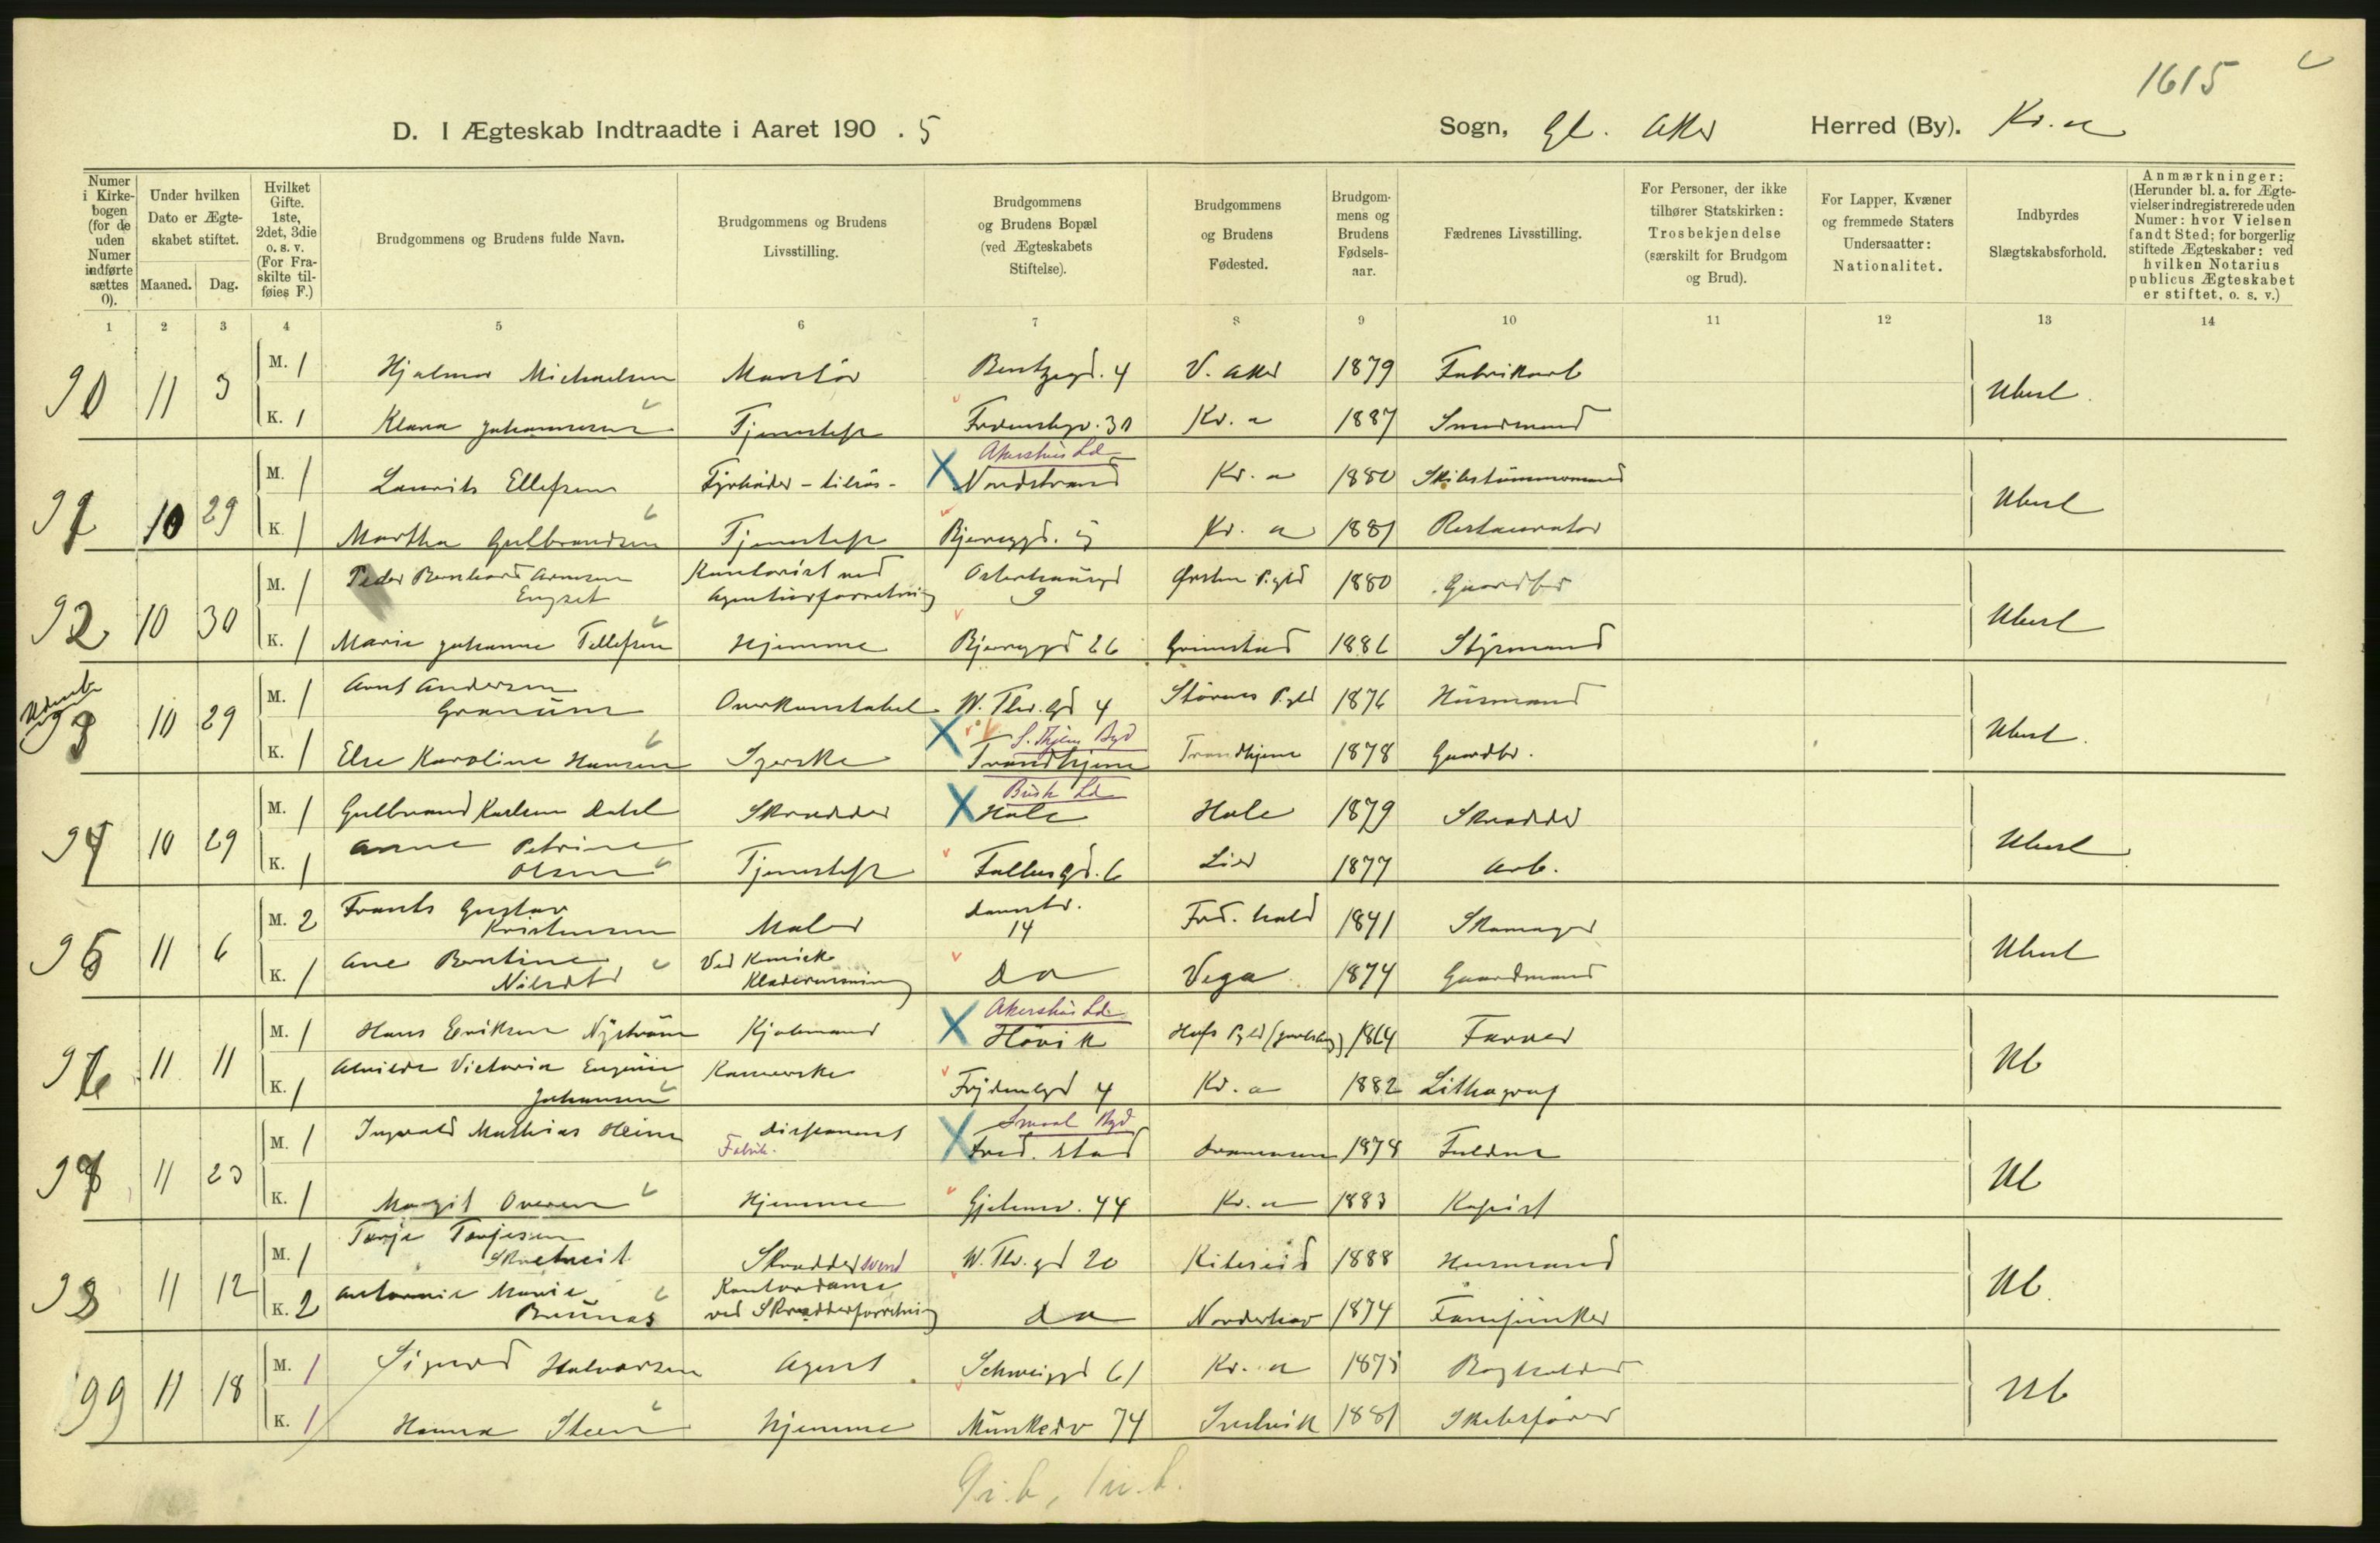 1615
D. I Ægteskab Indtraadte i Aaret 190 . 5 Sogn, Gl. Aker Herred (By). Kr.a
Numer i Kirke-bogen (for de uden Numer indførte sættes 0).
Under hvilken Dato er Ægte-skabet stiftet.
Maaned. Dag.
Hvilket Gifte. 1ste, 2det, 3die o. s. v. (For Fra-skilte til-føies F.)
Brudgommens og Brudens fulde Navn.
Brudgommens og Brudens Livsstilling.
Brudgommens og Brudens Bopæl (ved Ægteskabets Stiftelse).
Brudgommens og Brudens Fødested.
Brudgom-mens og Brudens Fødsels-aar.
Fædrenes Livsstilling.
For Personer, der ikke tilhører Statskirken: Trosbekjendelse (særskilt for Brudgom og Brud).
For Lapper, Kvæner og fremmede Staters Undersaatter: Nationalitet.
Indbyrdes Slægtskabsforhold.
Anmærkninger: (Herunder bl. a. for Ægte-vielser indregistrerede uden Numer: hvor Vielsen fandt Sted; for borgerlig stiftede Ægteskaber: ved hvilken Notarius publicus Ægteskabet er stiftet, o. s. v.)
1 2 3 4 5 6 7 8 9 10 11 12 13 14
90 11 5 M. 1 Hjalmar Michaelsen Montør Bentzegd. 4 V. Aker 1879 Fabrikarb Ubesl.
K. 1 Klara Johannesen Tjenestepe Kr. a 1887
Akershus Ld
91 10 29 M. 1 Laurits Ellefsen Fyrbøder - tilsøs - X Nordstrand Kr. a 1880 Skibstømmermand Ubesl
K. 1 Martha Gulbrandsen Tjenestepe Bjeregd. 5 Kr. a 1881 Restauratør
92 10 30 M. 1 Peder Bernhard Arnesen Engset Kontorist ved Agenturforretning Osterhausgd 9 Ørsten Pgld 1880 Gaardbr Ubesl
K. 1 Marie Johanne Tellefsen Hjemme Bjeregd 26 Grimstad 1886 Styrmand
93 10 29 M. 1 Arnt Andersen Granum Overkonstabel W. Thr. gd 4 Størens Pgld 1876 Husmand Ubesl.
S. Thjem Byd
K. 1 Else Karoline Hansen Syerske X Trondhjem Trondhjem 1878 Gaardbr.
Busk Ld
94 10 29 M. 1 Gulbrand Karlsen Dahl Skrædder X Hole Hole 1879 Skrædder Ubesl
K. 1 Anne Petrine Olsen Tjenestepe Falbesgd. 6 Lier 1877 Arb.
95 11 6 M. 2 Frants Gustav Kristensen Maler 14 Fred. hald 1841 Skomager Ubesl
K. 1 Ane Berntine Ved Kemisk Klæderensning do Vega 1874 Gaardmand
Akershus Ld
96 11 11 M. 1 Hans Eriksen Nystrøm Kjølmand X Høvik Hofs Pgld (Jarlsberg) 1864 Farver Ub
K. 1 Alvilde Victoria Eugenie Johansen Frydenlgd 4 Kr. a 1882 Lithograf
Smaal Byd
98 11 25 M. 1 Ingvald Mathias Heine Fabrik. disponent X Fred. stad Drammen 1878 Ub
K. 1 Margit Oversen Hjemme Gjetemv. 44 Kr. a 1883 Kopist
98 11 12 M. 1 Tarje Tarjesen Skræddersvend W. Thr. gd 20 Kviteseid 1888 Husmand Ub.
K. 2 Antonie Marie Kontordame ved Skrædderforretning do Norderhov 1874 Fanejunker
99 11 18 M. 1 Sigurd Halvorsen Agent Schweiggd 61 Kr. a 1875 Bogholder Ub
K. 1 Hanna Steen Hjemme Munkedv 74 Svelvik 1881 Skibsfører